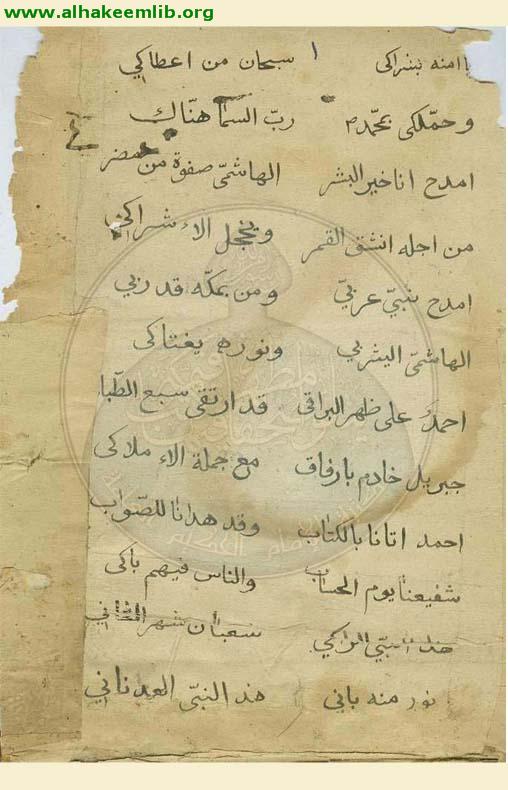 www.alhakeemlib.org
يا امنه بشراكى ١ سبحان من اعطاكي
وحملكى بمحمّد م ربّ السمآ هنّاك
امدح انا خير البشر الهاشمّى صفوة من مضر
من اجله انشق القمر ويخجل الاء شراكي
امدح بنبيّ عربيّ ومن بمكّه قد ربي
الهاشمّى اليثربي ونوره يغتاكى
احمد على ظهر البراقي قد ارتقى سبع الطّباق
جبريل خادم بارفاق مع جملة الاء ملاكى
احمد اتانا بالكتاب وقد هدانا للصّواب
شفيعنا يوم الحساب والناس فيهم باكى
هذا النبّي الزاكي شعبان شهر الثاني
نور منه باني هذ النبّى العدناني